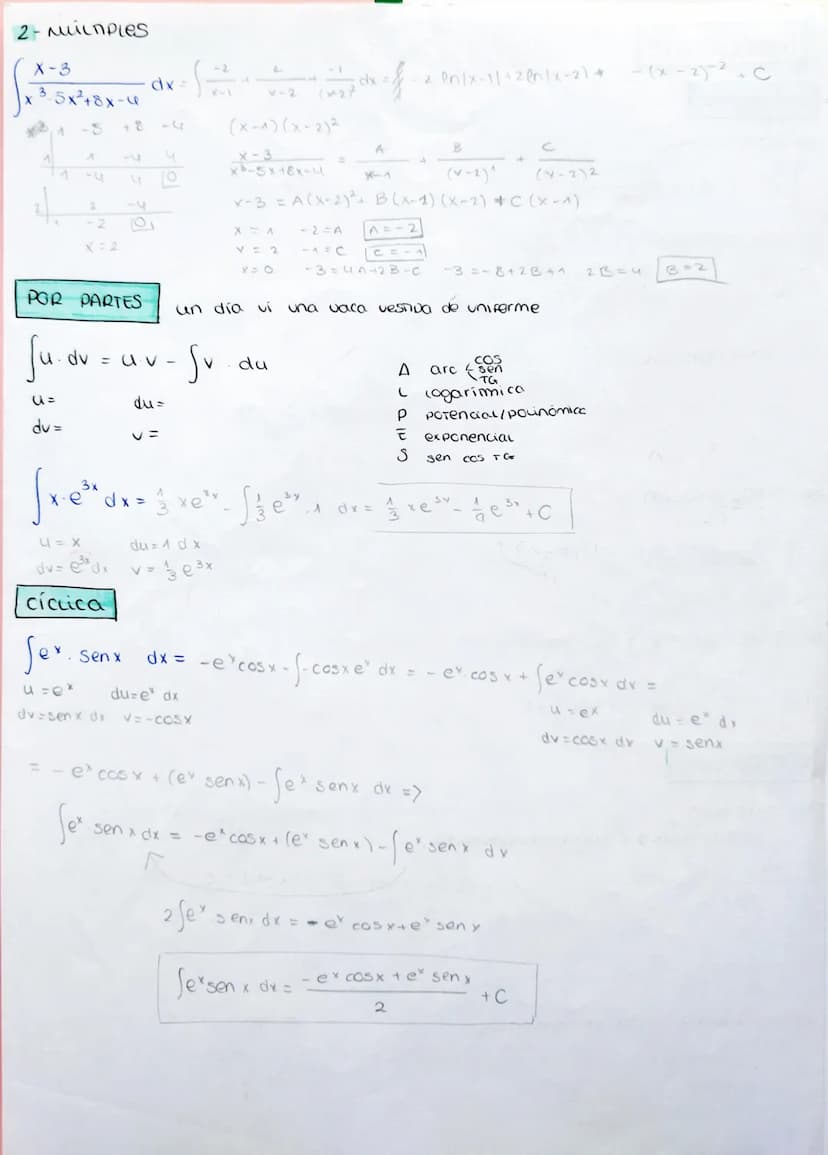 2- MÚLTIPLES
∫ x-3 / x³-5x²+8x-4 dx = ∫ -2/x-1 + 2/x-2 + -1/(x-2)² dx = -2 ln|x-1|+2ln|x-2| + -(x-2)⁻² + C
1 -5 +8 -4 (x-1)(x-2)²
1 1 -4 4 x-3 / x³-5x+8x-4 = A / x-1 + B / (x-2)¹ + C / (x-2)²
1 -4 4 0
2 2 -4 x-3 = A(x-2)² + B(x-1)(x-2) + C(x-1)
1 -2 0 x = 1 -2=A A=-2
x=2 x = 2 -1=C C=-1
x=0 -3=4A+2B-C -3=-8+2B+1 2B=4 B=2
POR PARTES un día vi una vaca vestida de uniforme
∫u·dv = u v - ∫v · du
A arc cos sen TG
u= du= L logarítmica
dv= v= P potencial/polinómica
E exponencial
S sen cos TG
∫x·e³ˣ dx = 1/3 xe³ˣ - ∫1/3 e³ˣ · 1 dx = 1/3 xe³ˣ - 1/9 e³ˣ + C
u=x du=1 dx
dv=e³ˣdx v=1/3 e³ˣ
CÍCLICA
∫eˣ·senx dx = -eˣcosx-∫-cosxeˣ dx = -eˣ·cosx+∫eˣcosx dx =
u=eˣ du=eˣ dx u=eˣ du=eˣ dx
dv=senx dx v=-cosx dv=cosx dx v=senx
= -eˣcosx+(eˣ senx)-∫eˣ senx dx =>
∫eˣ senx dx = -eˣcosx+(eˣ senx)-∫eˣ senx dx
2∫eˣ senx dx = -eˣ cosx+eˣ senx
∫eˣsenx dx = -eˣcosx+eˣ senx / 2 + C